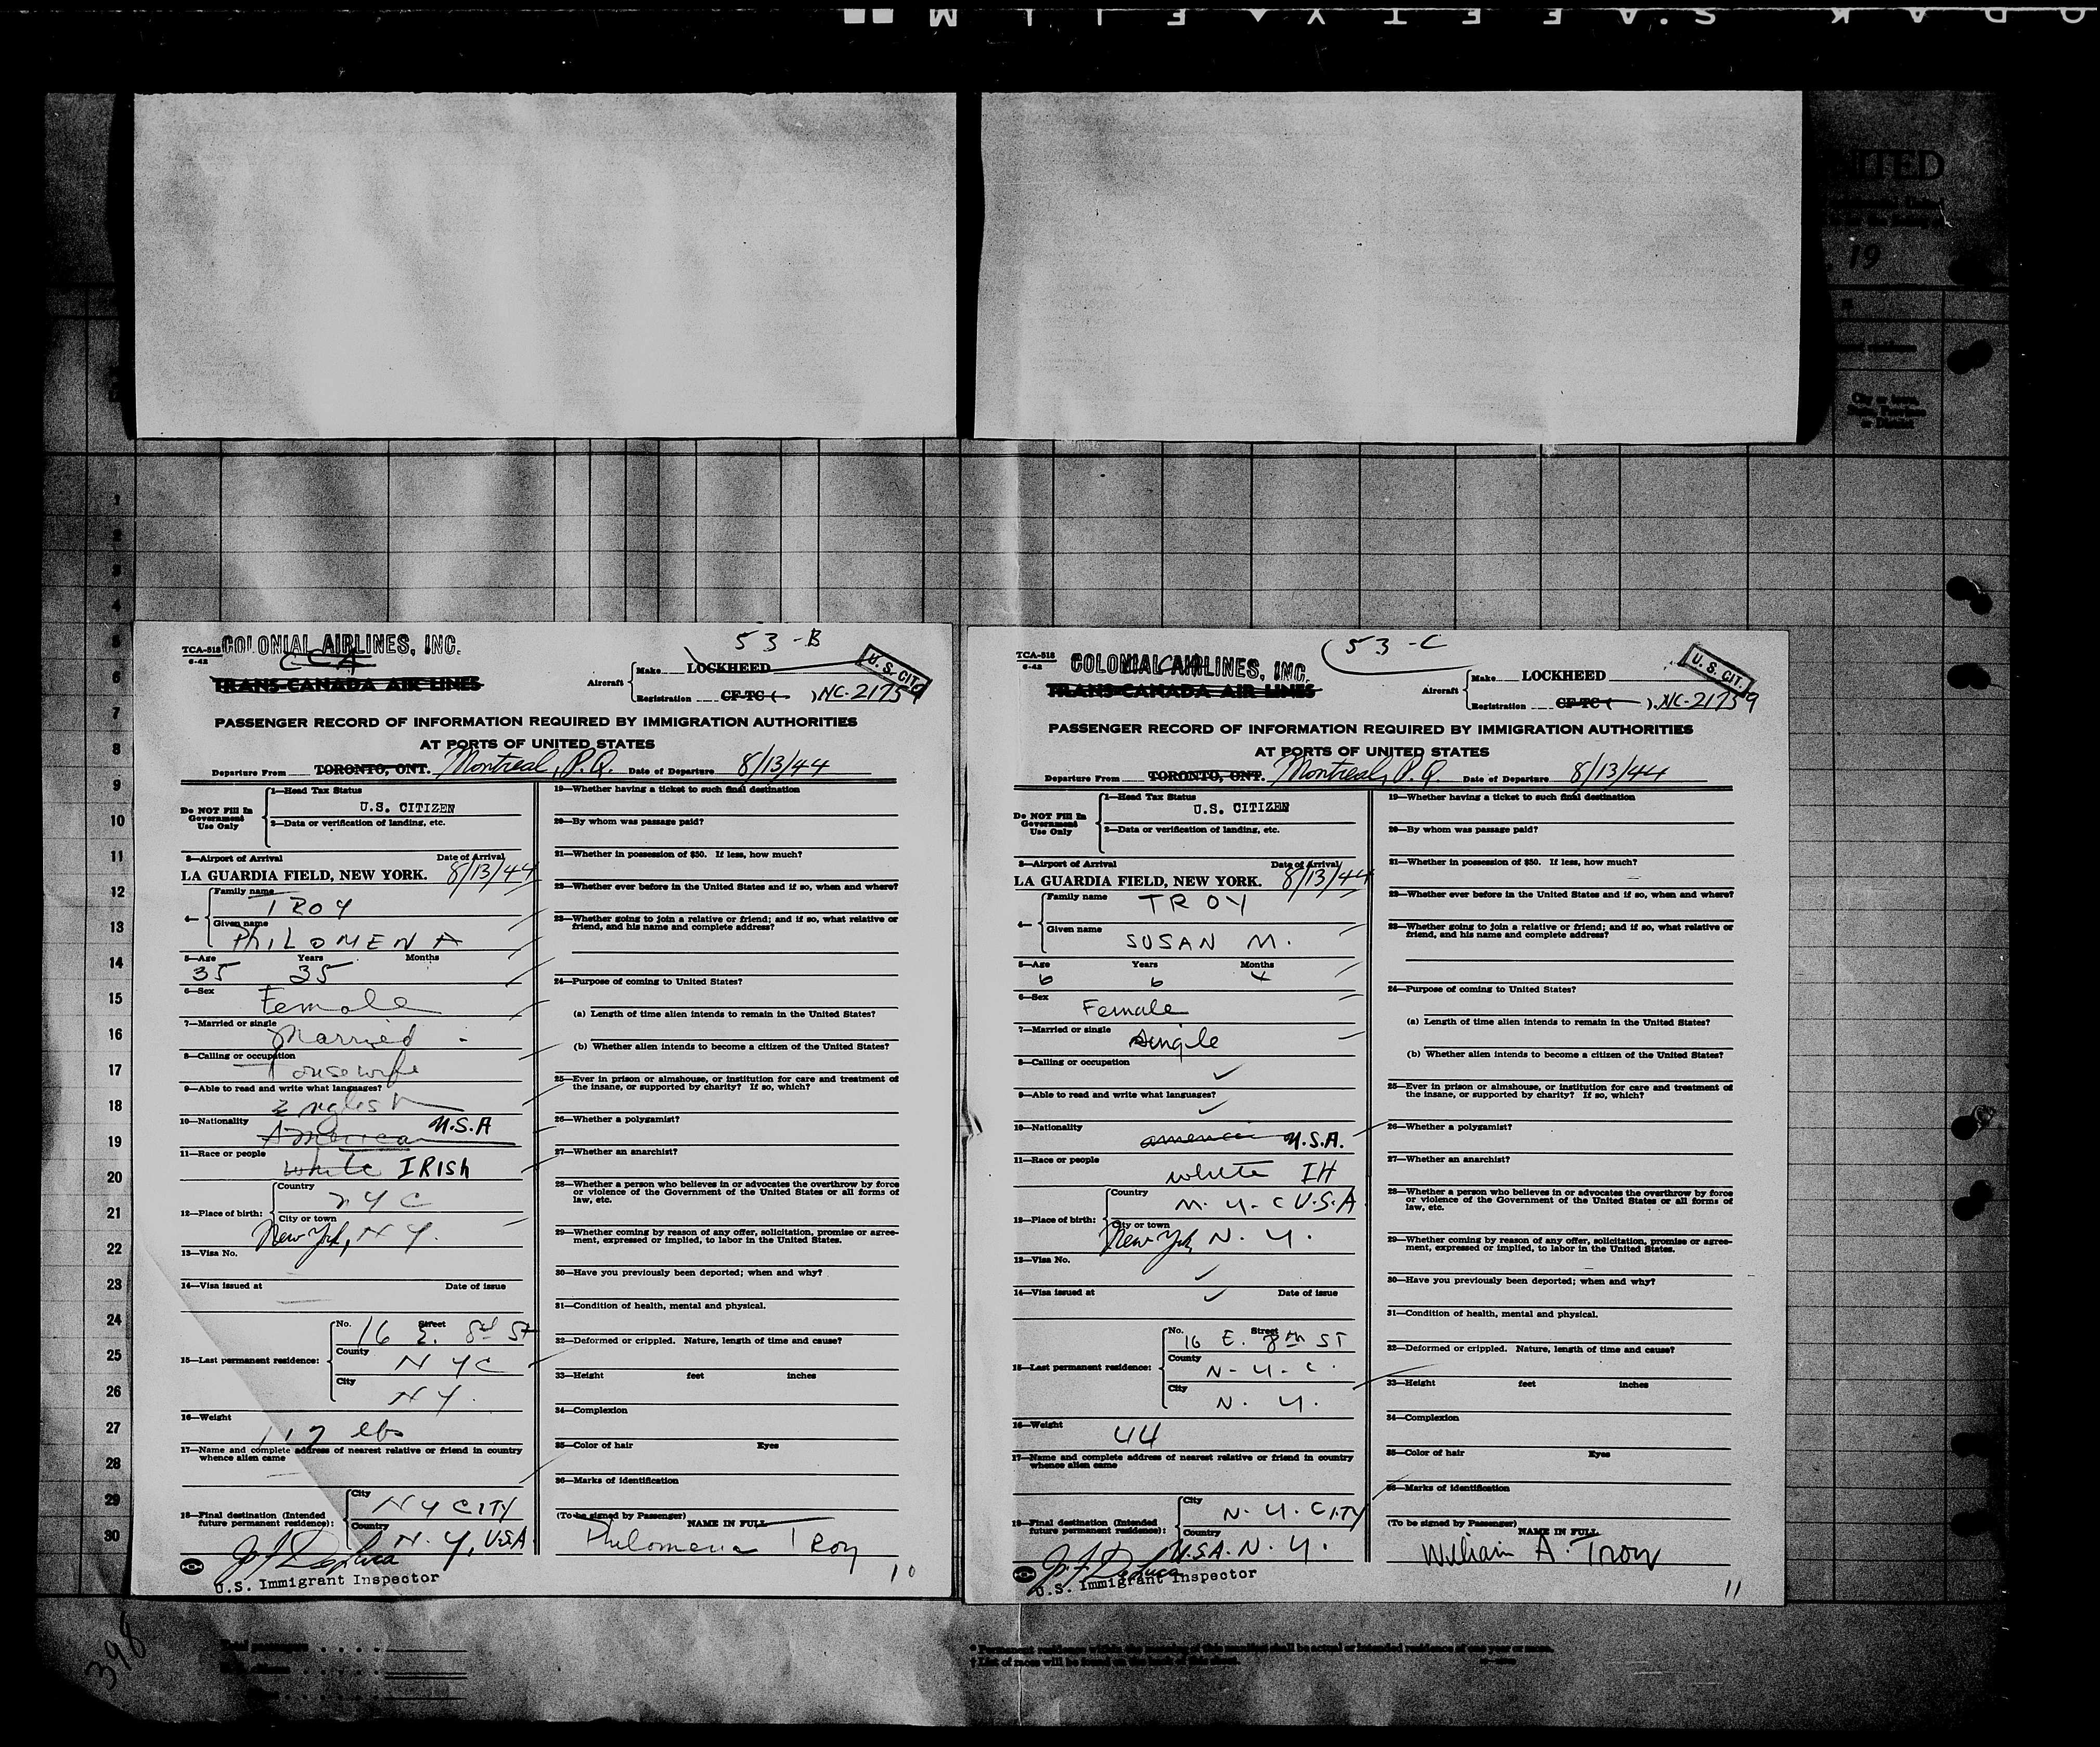 KODAK · SAFETY FILM
UNITED
19
City or town,
State, Province
or District
1
2
3
4
5
6
7
8
9
10
11
12
13
14
15
16
17
18
19
20
21
22
23
24
25
26
27
28
29
30
TCA-518
6-42
COLONIAL AIRLINES, INC.
CCA
TRANS-CANADA AIR LINES
53-B
Aircraft
Make LOCKHEED
Registration CF-TC ( ) NC-21759
U.S. CIT.
PASSENGER RECORD OF INFORMATION REQUIRED BY IMMIGRATION AUTHORITIES
AT PORTS OF UNITED STATES
Departure From TORONTO, ONT. Montreal, P.Q. Date of Departure 8/13/44
Do NOT Fill In
Government
Use Only
1—Head Tax Status
U.S. CITIZEN
2—Data or verification of landing, etc.
3—Airport of Arrival Date of Arrival
LA GUARDIA FIELD, NEW YORK. 8/13/44
4— Family name
TROY
Given name
PhILOMENA
5—Age Years Months
35 35
6—Sex
Female
7—Married or single
Married
8—Calling or occupation
Housewife
9—Able to read and write what languages?
English
10—Nationality
American U.S.A
11—Race or people
white IRISh
12—Place of birth:
Country
NYC
City or town
New York, N Y.
13—Visa No.
14—Visa issued at Date of issue
15—Last permanent residence:
No. Street
16 E. 8th St
County
N Y C
City
N Y.
16—Weight
117 lbs
17—Name and complete address of nearest relative or friend in country
whence alien came
18—Final destination (Intended
future permanent residence):
City
N Y CITY
Country
N. Y, USA
U.S. Immigrant Inspector
19—Whether having a ticket to such final destination
20—By whom was passage paid?
21—Whether in possession of $50. If less, how much?
22—Whether ever before in the United States and if so, when and where?
23—Whether going to join a relative or friend; and if so, what relative or
friend, and his name and complete address?
24—Purpose of coming to United States?
(a) Length of time alien intends to remain in the United States?
(b) Whether alien intends to become a citizen of the United States?
25—Ever in prison or almshouse, or institution for care and treatment of
the insane, or supported by charity? If so, which?
26—Whether a polygamist?
27—Whether an anarchist?
28—Whether a person who believes in or advocates the overthrow by force
or violence of the Government of the United States or all forms of
law, etc.
29—Whether coming by reason of any offer, solicitation, promise or agree-
ment, expressed or implied, to labor in the United States.
30—Have you previously been deported; when and why?
31—Condition of health, mental and physical.
32—Deformed or crippled. Nature, length of time and cause?
33—Height feet inches
34—Complexion
35—Color of hair Eyes
36—Marks of identification
(To be signed by Passenger) NAME IN FULL
Philomena Troy
10
TCA-518
6-42
COLONIAL AIRLINES, INC.
TRANS-CANADA AIR LINES
53-C
Aircraft
Make LOCKHEED
Registration CF-TC ( ) NC-21759
U.S. CIT.
PASSENGER RECORD OF INFORMATION REQUIRED BY IMMIGRATION AUTHORITIES
AT PORTS OF UNITED STATES
Departure From TORONTO, ONT. Montreal, P.Q. Date of Departure 8/13/44
Do NOT Fill In
Government
Use Only
1—Head Tax Status
U.S. CITIZEN
2—Data or verification of landing, etc.
3—Airport of Arrival Date of Arrival
LA GUARDIA FIELD, NEW YORK. 8/13/44
4— Family name
TROY
Given name
SUSAN M.
5—Age Years Months
6 6 4
6—Sex
Female
7—Married or single
single
8—Calling or occupation
9—Able to read and write what languages?
10—Nationality
U.S.A.
11—Race or people
white IH
12—Place of birth:
Country
N. Y. C U.S.A
City or town
New York N. Y.
13—Visa No.
14—Visa issued at Date of issue
15—Last permanent residence:
No. Street
16 E. 8th ST
County
N. Y. C.
City
N. Y.
16—Weight
44
17—Name and complete address of nearest relative or friend in country
whence alien came
18—Final destination (Intended
future permanent residence):
City
N. Y. CITY
Country
U.S.A. N. Y.
U.S. Immigrant Inspector
19—Whether having a ticket to such final destination
20—By whom was passage paid?
21—Whether in possession of $50. If less, how much?
22—Whether ever before in the United States and if so, when and where?
23—Whether going to join a relative or friend; and if so, what relative or
friend, and his name and complete address?
24—Purpose of coming to United States?
(a) Length of time alien intends to remain in the United States?
(b) Whether alien intends to become a citizen of the United States?
25—Ever in prison or almshouse, or institution for care and treatment of
the insane, or supported by charity? If so, which?
26—Whether a polygamist?
27—Whether an anarchist?
28—Whether a person who believes in or advocates the overthrow by force
or violence of the Government of the United States or all forms of
law, etc.
29—Whether coming by reason of any offer, solicitation, promise or agree-
ment, expressed or implied, to labor in the United States.
30—Have you previously been deported; when and why?
31—Condition of health, mental and physical.
32—Deformed or crippled. Nature, length of time and cause?
33—Height feet inches
34—Complexion
35—Color of hair Eyes
36—Marks of identification
(To be signed by Passenger) NAME IN FULL
William A. Troy
11
398
Total passengers
* Permanent residence within the meaning of this manifest shall be actual or intended residence of one year or more.
† List of races will be found on the back of this sheet.